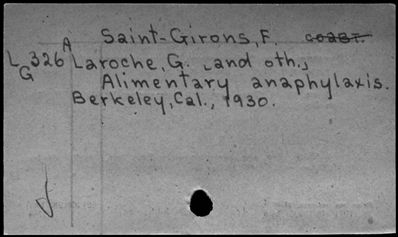 Saint-Girons, F. coabt.
LG326A Laroche, G. (and oth.)
Alimentary anaphylaxis.
Berkeley, Cal., 1930.